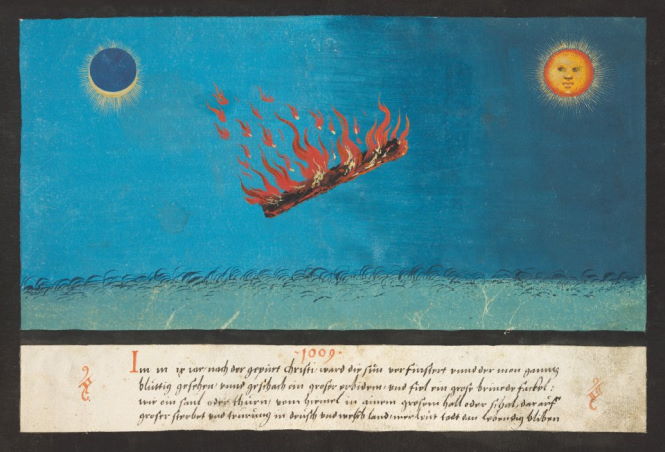 ·1009·
Im m ix iar nach der gepurt Christi ward die sun verfinstert vnnd der mon ganntz
blůttig gesehen vnnd geschach ein groser erdbidem vnd fiel ein grose brinende fackel
wie ein saul oder thurn vom hymel in ainem grosem hall oder schal darauf
groser sterbet vnd in deusch vnd welsch land lebendig bliben